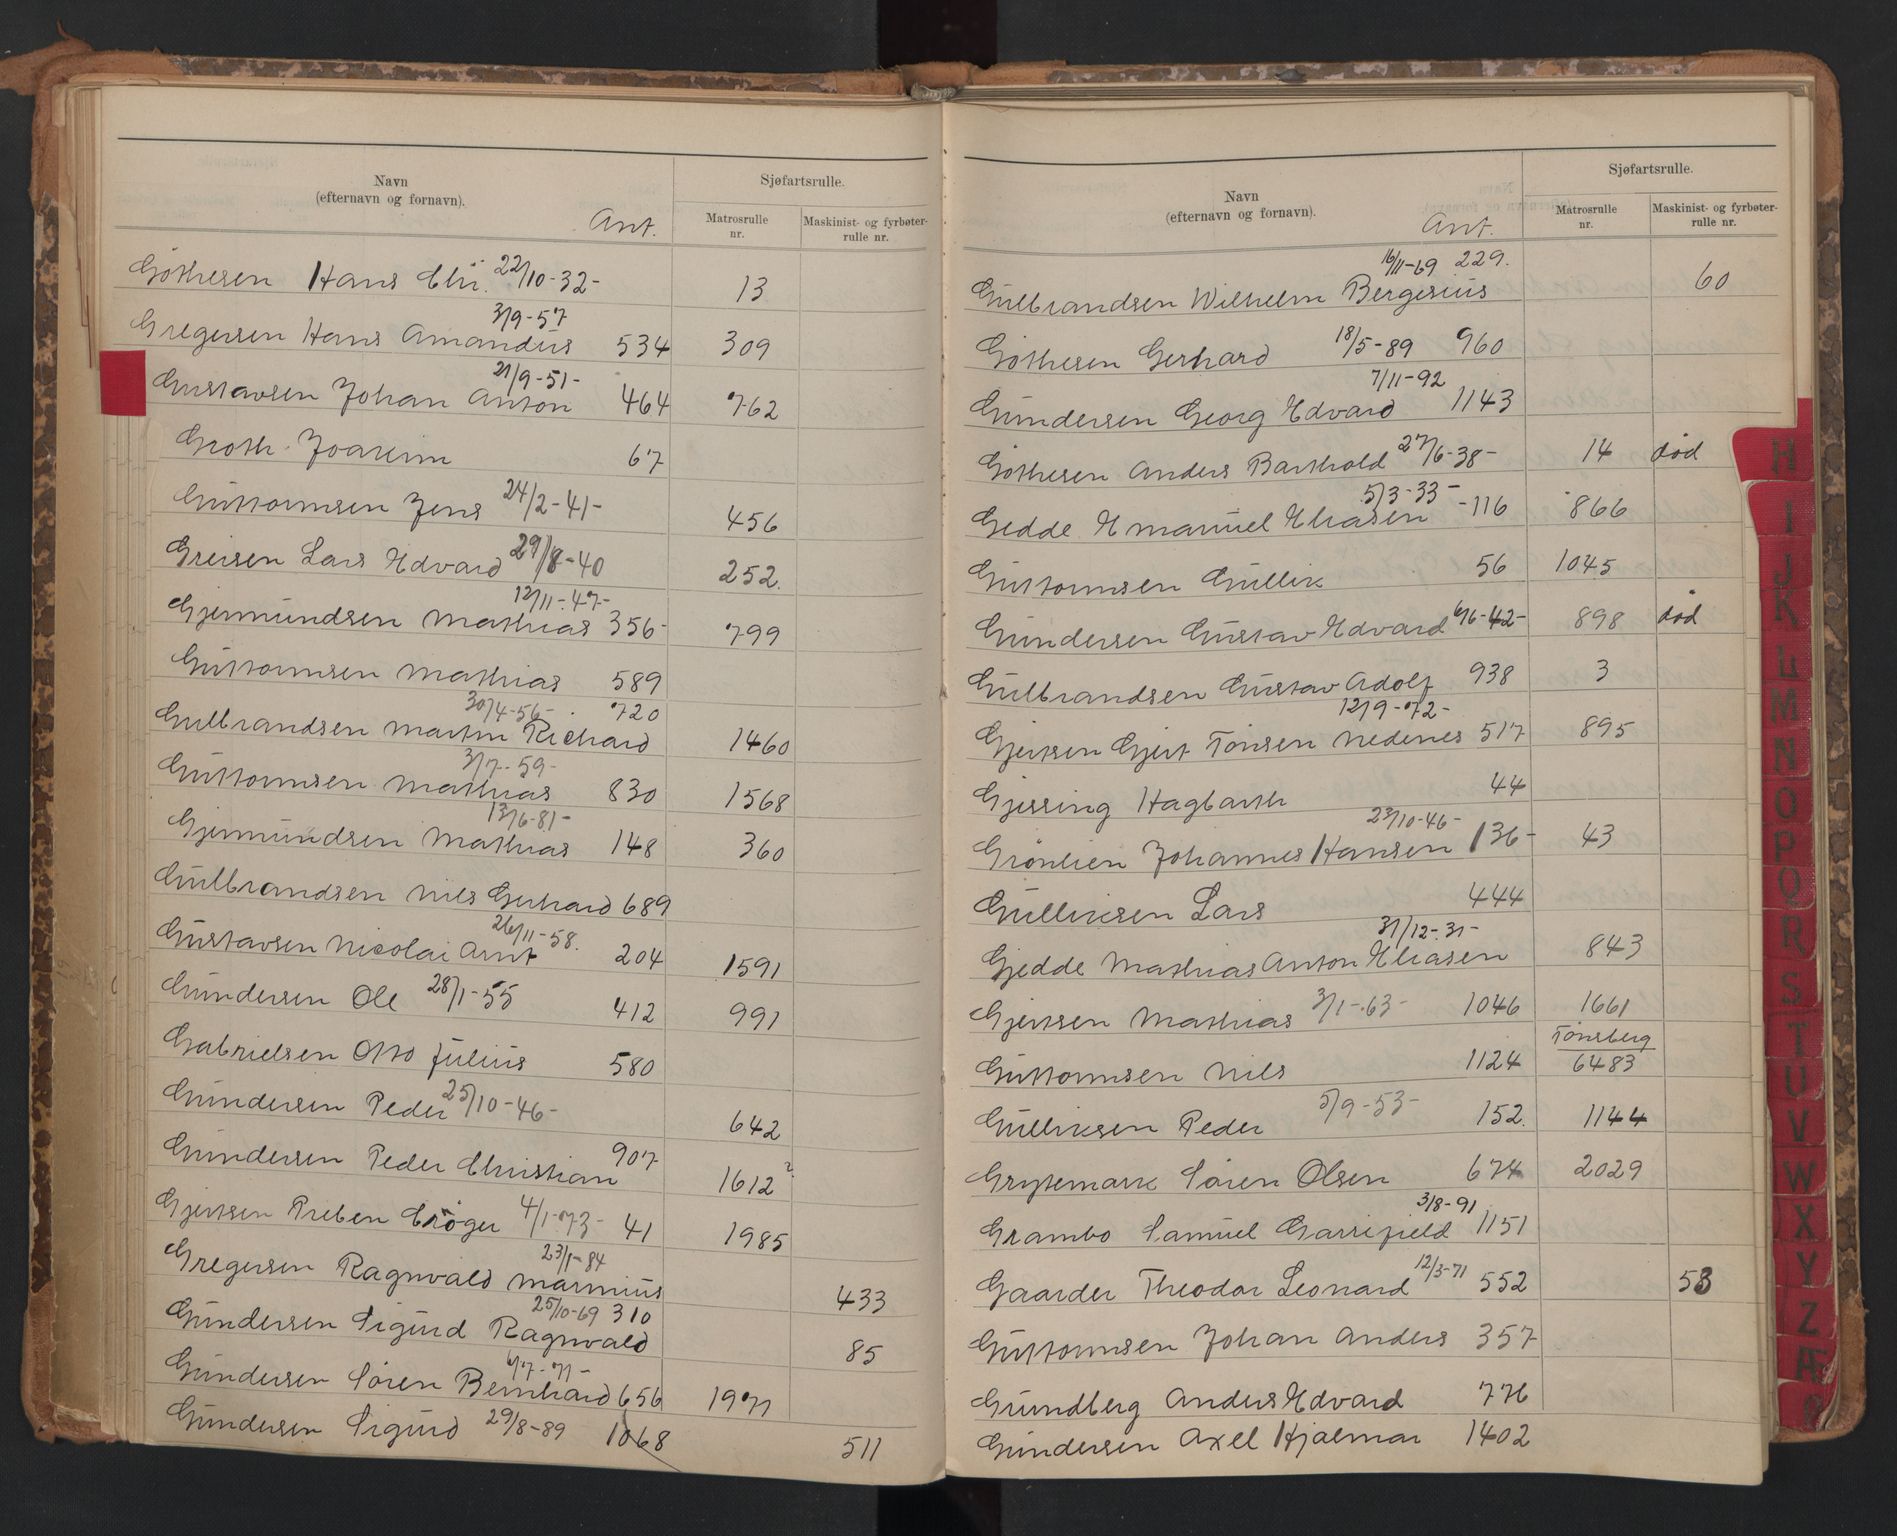 Navn
(efternavn og fornavn).
Ant.
Sjøfartsrulle.
Matrosrulle
nr.
Maskinist- og fyrbøter-
rulle nr.
Göthesen Hans Chr. 22/10-32- 13
3/9-57
Gregersen Hans Amandus 534 309
21/9-51-
Gustavsen Johan Anton 464 762
Groth Joakim 67
Guttormsen Jens 24/2-41- 456
Greisen Lars Edvard 29/8-40 252.
12/11-47-
Gjermundsen Mathias 356- 799
Guttormsen Mathias 589
30/4-56- 720
Gulbrandsen Martin Richard 1460
3/7-59-
Guttormsen Mathias 830 1568
13/6-81-
Gjermundsen Mathias 148 360
Gulbrandsen Nils Gerhard 689
26/11-58.
Gustavsen Nicolai Arnt 204 1591
Gundersen Ole 28/1-55 412 991
Gabrielsen Otto Julius 580
Gundersen Peder 25/10-46- 642
907
Gundersen Peder Christian 1612 ?
Gjertsen Preben Crøger 4/1-73- 41 1985
23/1-84
Gregersen Ragnvald Marinius 433
25/10-69 310
Gundersen Sigurd Ragnvald 85
6/7-71-
Gundersen Sören Bernhard 656 1971
Gundersen Sigurd 29/8-89 1068 511
Navn
(efternavn og fornavn).
Ant.
Sjøfartsrulle.
Matrosrulle
nr.
Maskinist- og fyrbøter-
rulle nr.
16/11-69 229.
Gulbrandsen Wilhelm Bergesius 60
Göthesen Gerhard 18/5-89 960
7/11-92
Gundersen Georg Edvard 1143
Göthesen Anders Barthold 27/6-38- 14 død
5/3-33-
Gedde Emanuel Eliasen -116 866
Guttormsen Gullik 56 1045
Gundersen Gustav Edvard 6/6-42- 898 død
Gulbrandsen Gustav Adolf 938 3
12/9-72-
Gjertsen Gjert Tönsen Nedenes 517 895
Gjessing Hagbarth 44
23/10-46-
Grönlien Johannes Hansen 136- 43
Gulliksen Lars 444
31/12-31-
Gjedde Mathias Anton Eliasen 843
Gjertsen Mathias 3/1-63- 1046 1661
Guttormsen Nils 1124 Tönsberg
6483
Gulliksen Peder 5/9-53- 152. 1144
Grytemark Sören Olsen 674 2029
3/8-91
Grambo Samuel Garrifield 1151
Gaarder Theodor Leonard 12/3-71 552 53
Guttormsen Johan Anders 357
Grundberg Anders Edvard 776
Gundersen Axel Hjalmar 1402
H
I
J
K
L
M
N
O
P
Q
R
S
T
U
V
W
X
Y
Z
Æ
Ø